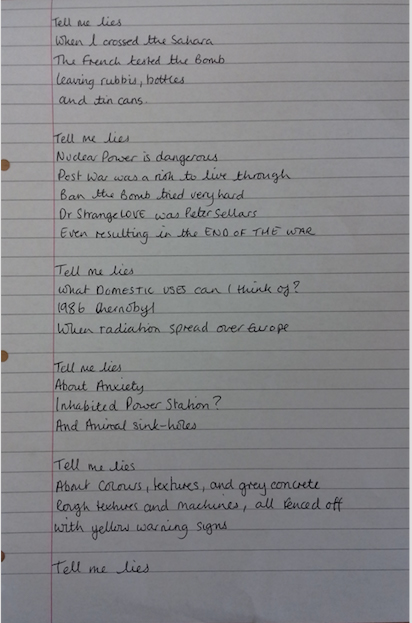 Tell me lies
When I crossed the Sahara
The French tested the Bomb
leaving rubbis, bottles
and tin cans.
Tell me lies
Nuclear Power is dangerous
Post War was a risk to live through
Ban the Bomb tried very hard
Dr StrangeLOVE was Peter Sellars
Even resulting in the END OF THE WAR
Tell me lies
What DOMESTIC USES can I think of?
1986 Chernobyl
When radiation spread over Europe
Tell me lies
About Anxiety
Inhabited Power Station?
And Animal sink-holes
Tell me lies
About Colours, textures, and grey concrete
Rough textures and machines, all fenced off
with yellow warning signs
Tell me lies